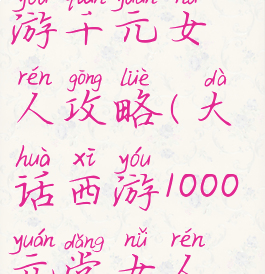 游千元女
rén gōng lüè dà
人攻略(大
huà xī yóu
话西游1000
yuán dǎng nǚ rén
元党女人